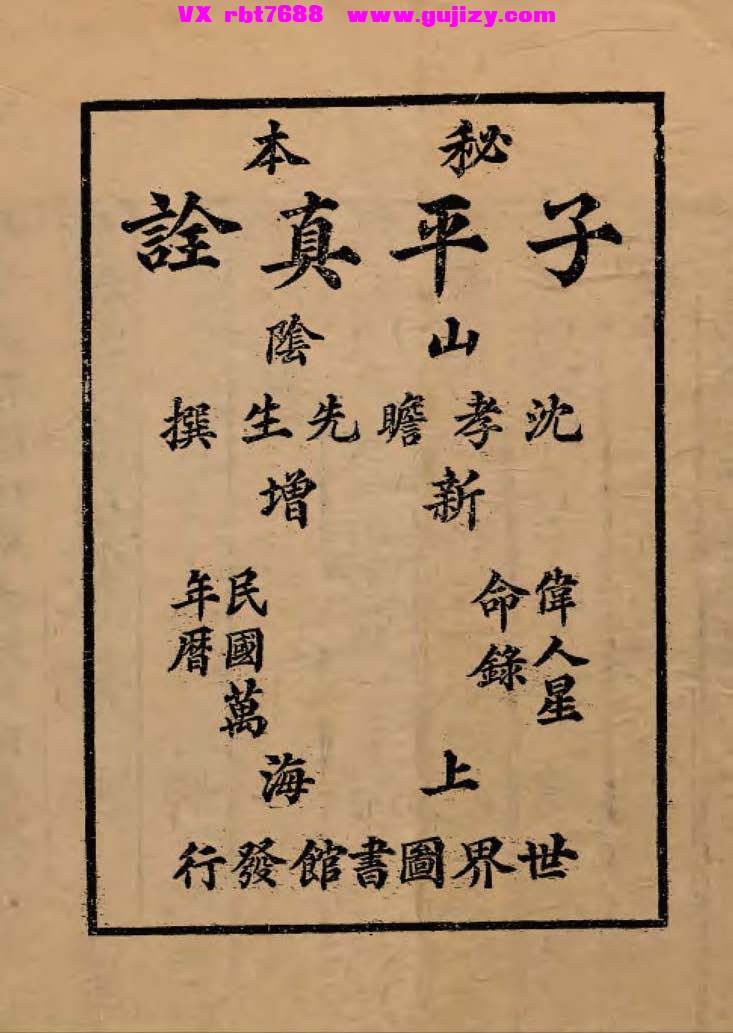 VX rbt7688 www.gujizy.com
秘本
子平真詮
山陰
沈孝瞻先生撰
新增
偉人星
命錄
民國萬
年曆
上海
世界圖書館發行